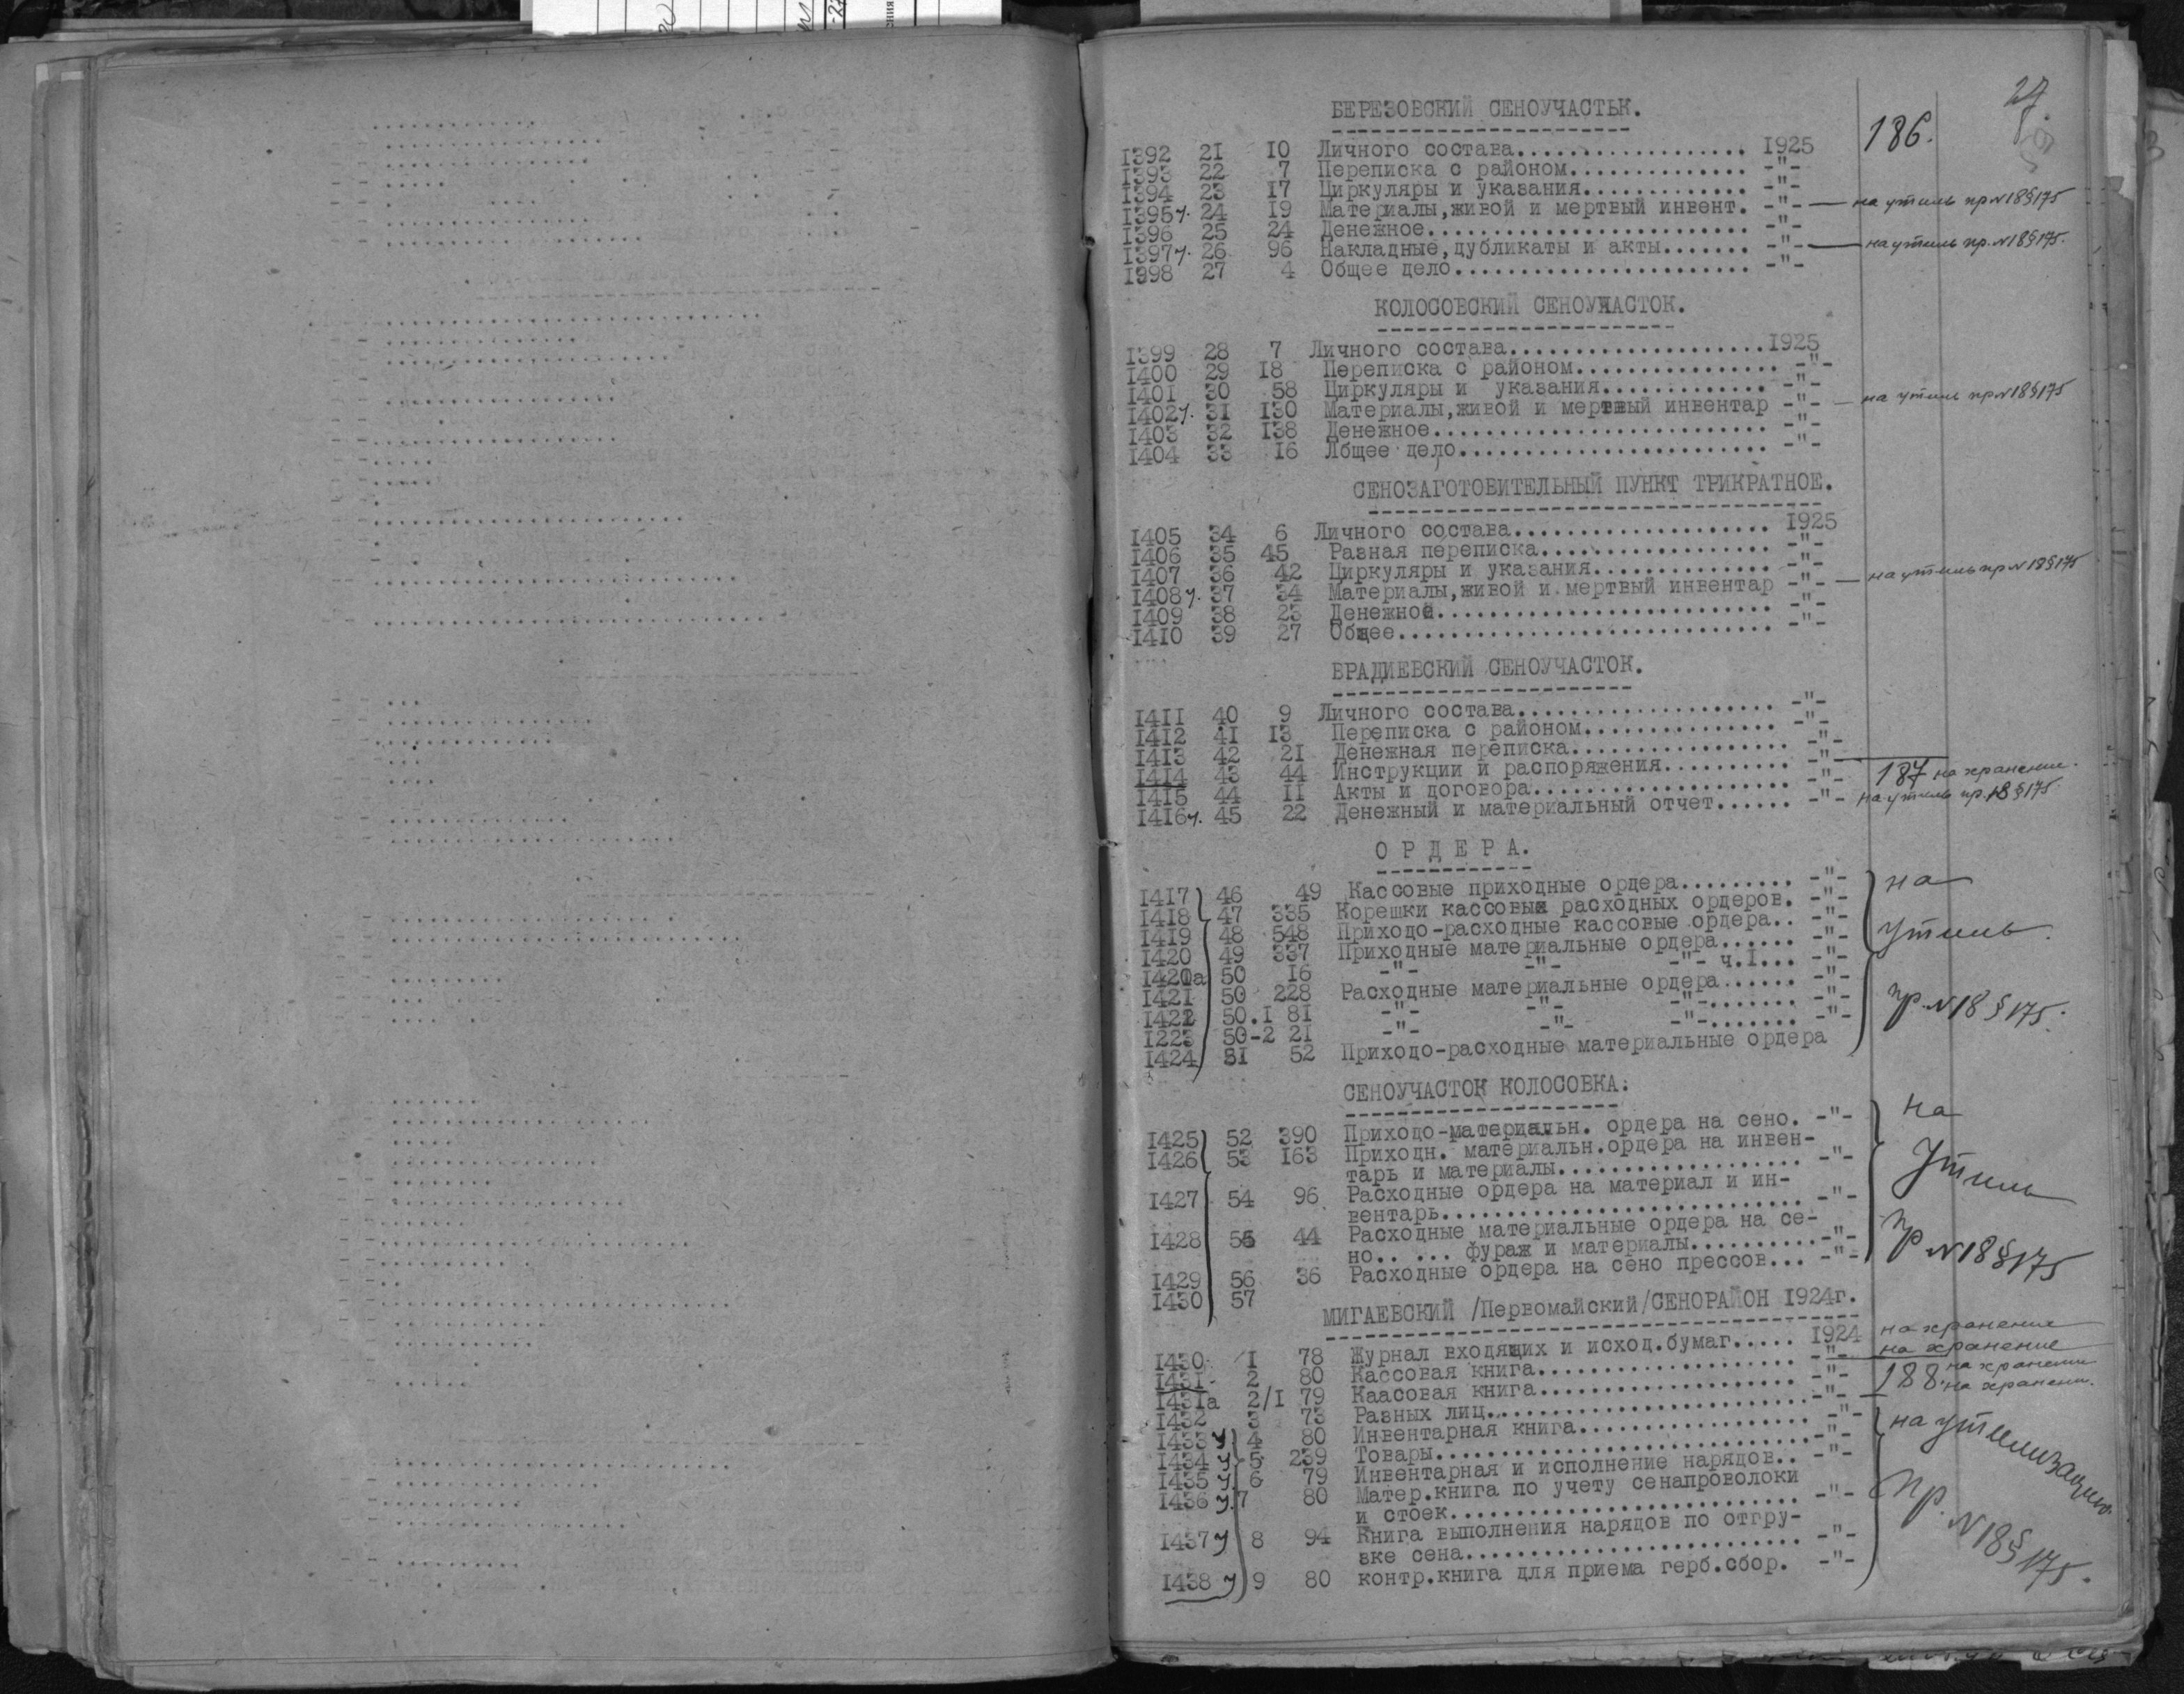 27
186.
БЕРЕЗОВСКИЙ СЕНОУЧАСТЬК.
1392 21 10 Личного состава.................. 1925
1393 22 7 Переписка с районом.............. -"-
1394 23 17 Циркуляры и указания............. -"-
1395 у. 24 19 Материалы,живой и мертвый инвент. -"- — на утиль пр N18 §175
1396 25 24 Денежное......................... -"-
1397 у. 26 96 Накладные,дубликаты и акты....... -"- — на утиль пр. N18 §175.
1998 27 4 Общее дело....................... -"-
КОЛОСОВСКИЙ СЕНОУЧАСТОК.
1399 28 7 Личного состава....................1925
1400 29 18 Переписка с районом................ -"-
1401 30 58 Циркуляры и указания............. -"-
1402 у. 31 130 Материалы,живой и мертвый инвентар -"- — на утиль пр N18 §175
1403 32 138 Денежное.......................... -"-
1404 33 16 Лбщее дело........................ -"-
СЕНОЗАГОТОВИТЕЛЬНЫЙ ПУНКТ ТРИКРАТНОЕ.
1405 34 6 Личного состава.................... 1925
1406 35 45 Разная переписка.................. -"-
1407 36 42 Циркуляры и указания.............. -"-
1408 у. 37 34 Материалы,живой и мертвый инвентар -"- — на утиль пр N18 §175
1409 38 23 Денежной.......................... -"-
1410 39 27 Общее............................. -"-
ВРАДИЕВСКИЙ СЕНОУЧАСТОК.
1411 40 9 Личного состава.................... -"-
1412 41 13 Переписка с районом............... -"-
1413 42 21 Денежная переписка................. -"-
1414 43 44 Инструкции и распоряжения.......... -"-
1415 44 11 Акты и договора.................... -"- 187 на хранение.
1416 у. 45 22 Денежный и материальный отчет...... -"- на утиль пр. 18 §175.
О Р Д Е Р А.
1417 46 49 Кассовые приходные ордера......... -"- на
1418 47 335 Корешки кассовыя расходных ордеров. -"-
1419 48 548 Приходо-расходные кассовые ордера.. -"- утиль.
1420 49 337 Приходные материальные ордера...... -"-
1420а 50 16 -"- -"- -"- ч.I... -"-
1421 50 228 Расходные материальные ордера...... -"-
1422 50.1 81 -"- -"- -"-....... -"- пр. N18 §175.
1223 50-2 21 -"- -"- -"-....... -"-
1424 81 52 Приходо-расходные материальные ордера
СЕНОУЧАСТОК КОЛОСОВКА:
1425 52 390 Приходо-материальн. ордера на сено. -"- на
1426 53 163 Приходн. материальн.ордера на инвен-
тарь и материалы................... -"- Утиль
1427 54 96 Расходные ордера на материал и ин-
вентарь............................ -"-
1428 55 44 Расходные материальные ордера на се-
но.. ... фураж и материалы..........-"- пр N18 §175
1429 56 36 Расходные ордера на сено прессов... -"-
1430 57
МИГАЕВСКИЙ /Первомайский/СЕНОРАЙОН 1924г.
1430 1 78 Журнал входящих и исход.бумаг..... 1924 на хранение
1431 2 80 Кассовая книга.................... -"- на хранение
1431а 2/1 79 Каасовая книга.................... -"- 188. на хранении
1432 3 73 Разных лиц........................-"- на хранени.
1433 у 4 80 Инвентарная книга.................. -"- на утилизацию
1434 у 5 239 Товары.............................-"-
1435 у 6 79 Инвентарная и исполнение нарядов.. -"-
1436 у. 7 80 Матер.книга по учету сенапроволоки
и стоек........................... -"- пр. N18 § 175.
1437 у 8 94 Книга выполнения нарядов по отгру-
зке сена.......................... -"-
1438 у 9 80 контр.книга для приема герб.сбор. -"-